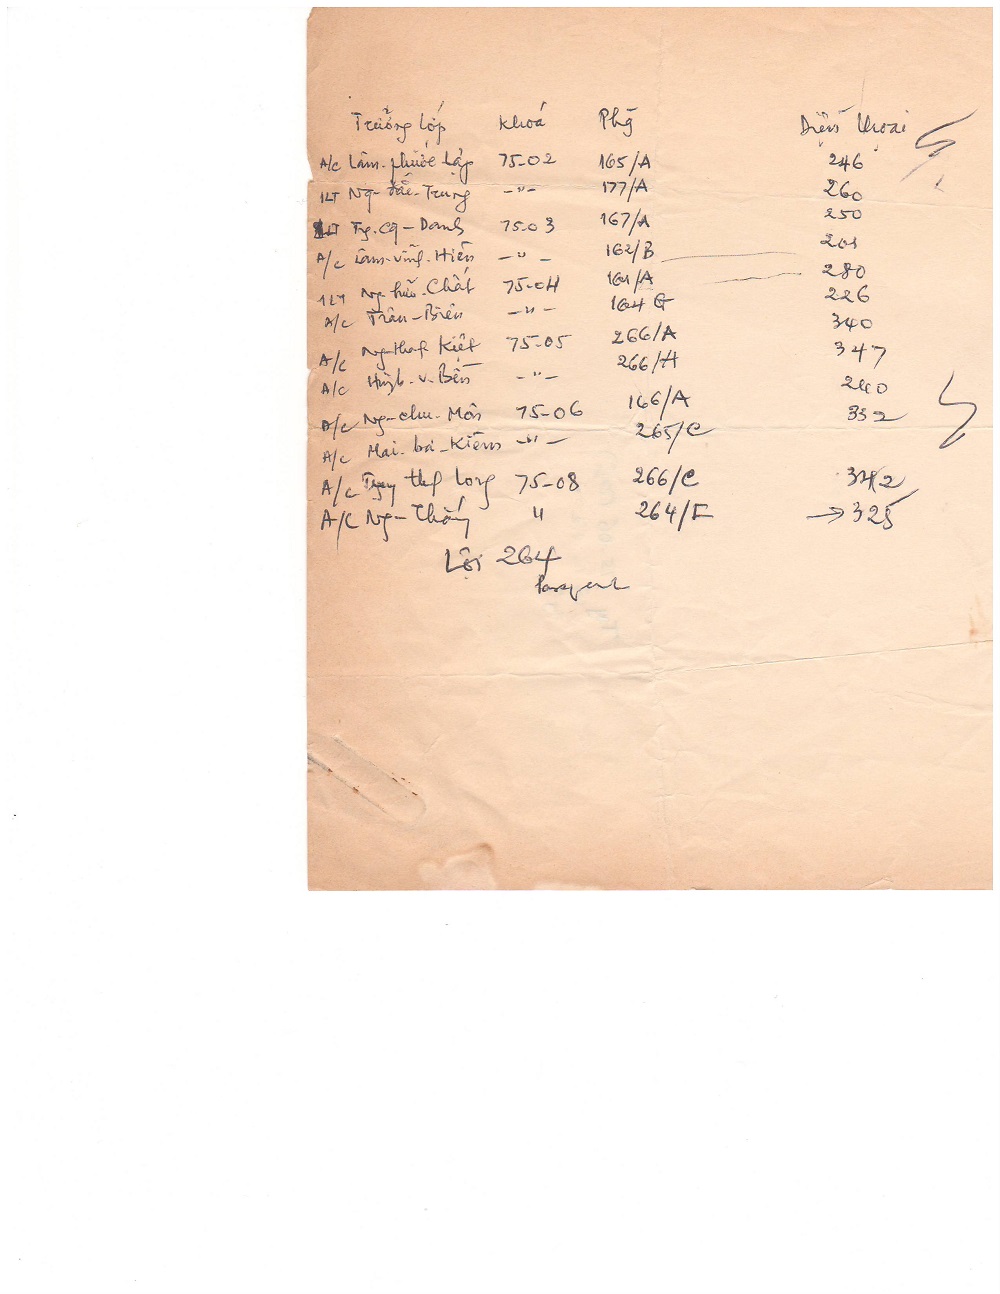 Trưởng lớp Khoá Phg Điện thoại
A/C Lâm-phước Lập 75-02 165/A 246
1LT Ng-tấn-Trung -"- 177/A 260
1LT Tg.cg-Danh 75-03 167/A 250
A/C Lâm-vĩnh-Hiền -"- 162/B 201
1LT Ng-hữu-Chất 75-04 161/A 280
A/C Trần-Biên -"- 164 G 226
A/C Ng-that Kiệt 75-05 266/A 340
A/C Huỳnh-v-Bền -"- 266/H 347
A/C Ng-chu-Môn 75-06 166/A 240
A/C Mai-bá-Kiếm -"- 265/C 332
A/C long 75-08 266/C 342
A/C Ng-Thắng " 264/F → 325
Lợi 264